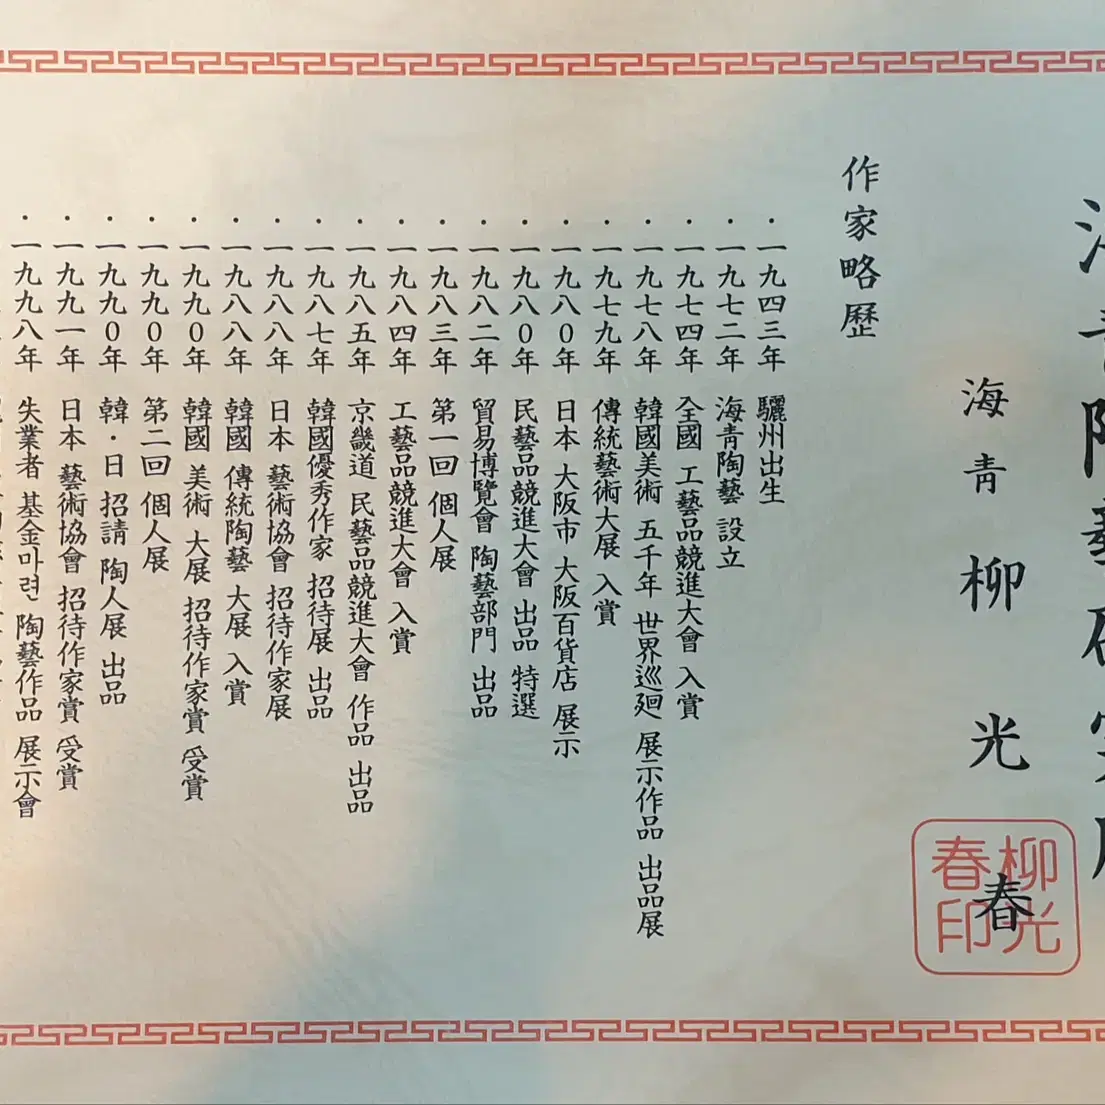 海青 柳光春
柳光春印
作家略歷
・一九四三年 驪州出生
・一九七二年 海青陶藝 設立
・一九七四年 全國 工藝品競進大會 入賞
・一九七八年 韓國美術 五千年 世界巡廻 展示作品 出品展
・一九七九年 傳統藝術大展 入賞
・一九八0年 日本 大阪市 大阪百貨店 展示
・一九八0年 民藝品競進大會 出品 特選
・一九八二年 貿易博覽會 陶藝部門 出品
・一九八三年 第一回 個人展
・一九八四年 工藝品競進大會 入賞
・一九八五年 京畿道 民藝品競進大會 作品 出品
・一九八七年 韓國優秀作家 招待展 出品
・一九八八年 日本 藝術協會 招待作家展
・一九八八年 韓國 傳統陶藝 大展 入賞
・一九九0年 韓國 美術 大展 招待作家賞 受賞
・一九九0年 第二回 個人展
・一九九0年 韓・日 招請 陶人展 出品
・一九九一年 日本 藝術協會 招待作家賞 受賞
・一九九八年 失業者 基金마련 陶藝作品 展示會